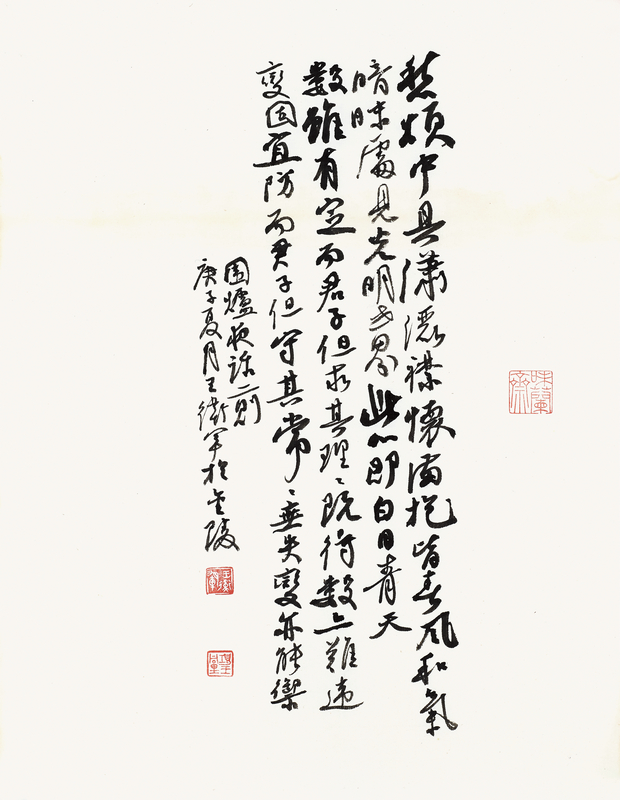 愁煩中具瀟灑襟懷滿抱皆春風和氣
暗昧處見光明世界此心即白日青天
數雖有定而君子但求其理〻既得數亦難違
變固宜防而君子但守其常〻無失變亦能禦
圍爐夜話二則
庚子夏月王衛軍於金陵